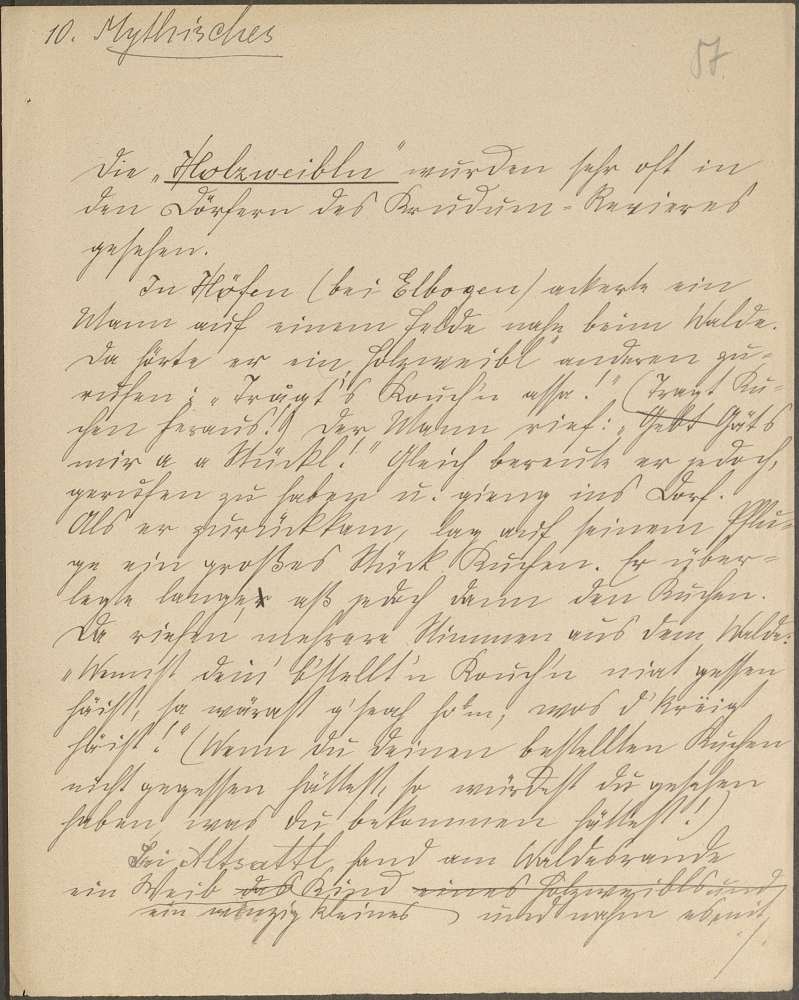 10. Mythisches
57.
Die „Holzweibln" wurden sehr oft in
den Dörfern des Krudum-Revieres
gesehen.
In Höfen (bei Elbogen) ackerte ein
Mann auf einem Felde nahe beim Walde.
Da hörte er ein „Holzweibl" anderen zu-
rufen: „Trågt's Kouch'n assa!" (Tragt Ku-
chen heraus!) Der Mann rief: „Gebt Gäts
mir a a Stückl!" Gleich bereute er jedoch,
gerufen zu haben u. gieng ins Dorf.
Als er zurückkam, lag auf seinem Pflu-
ge ein großes Stück Kuchen. Er über-
legte lange, aß jedoch dann den Kuchen.
Da riefen mehrere Stimmen aus dem Walde:
„Wennst dein' b'stellt'n Kouch'n niat gessen
häist, sa wärast g'seah ho'm, wos d' kröigt
häist!" (Wenn du deinen bestellten Kuchen
nicht gegessen hättest, so würdest du gesehen
haben, was du bekommen hättest!)
Bei Altsattl fand am Waldesrande
ein Weib das Kind eines Holzweibls und
ein winzig kleines und nahm es mit